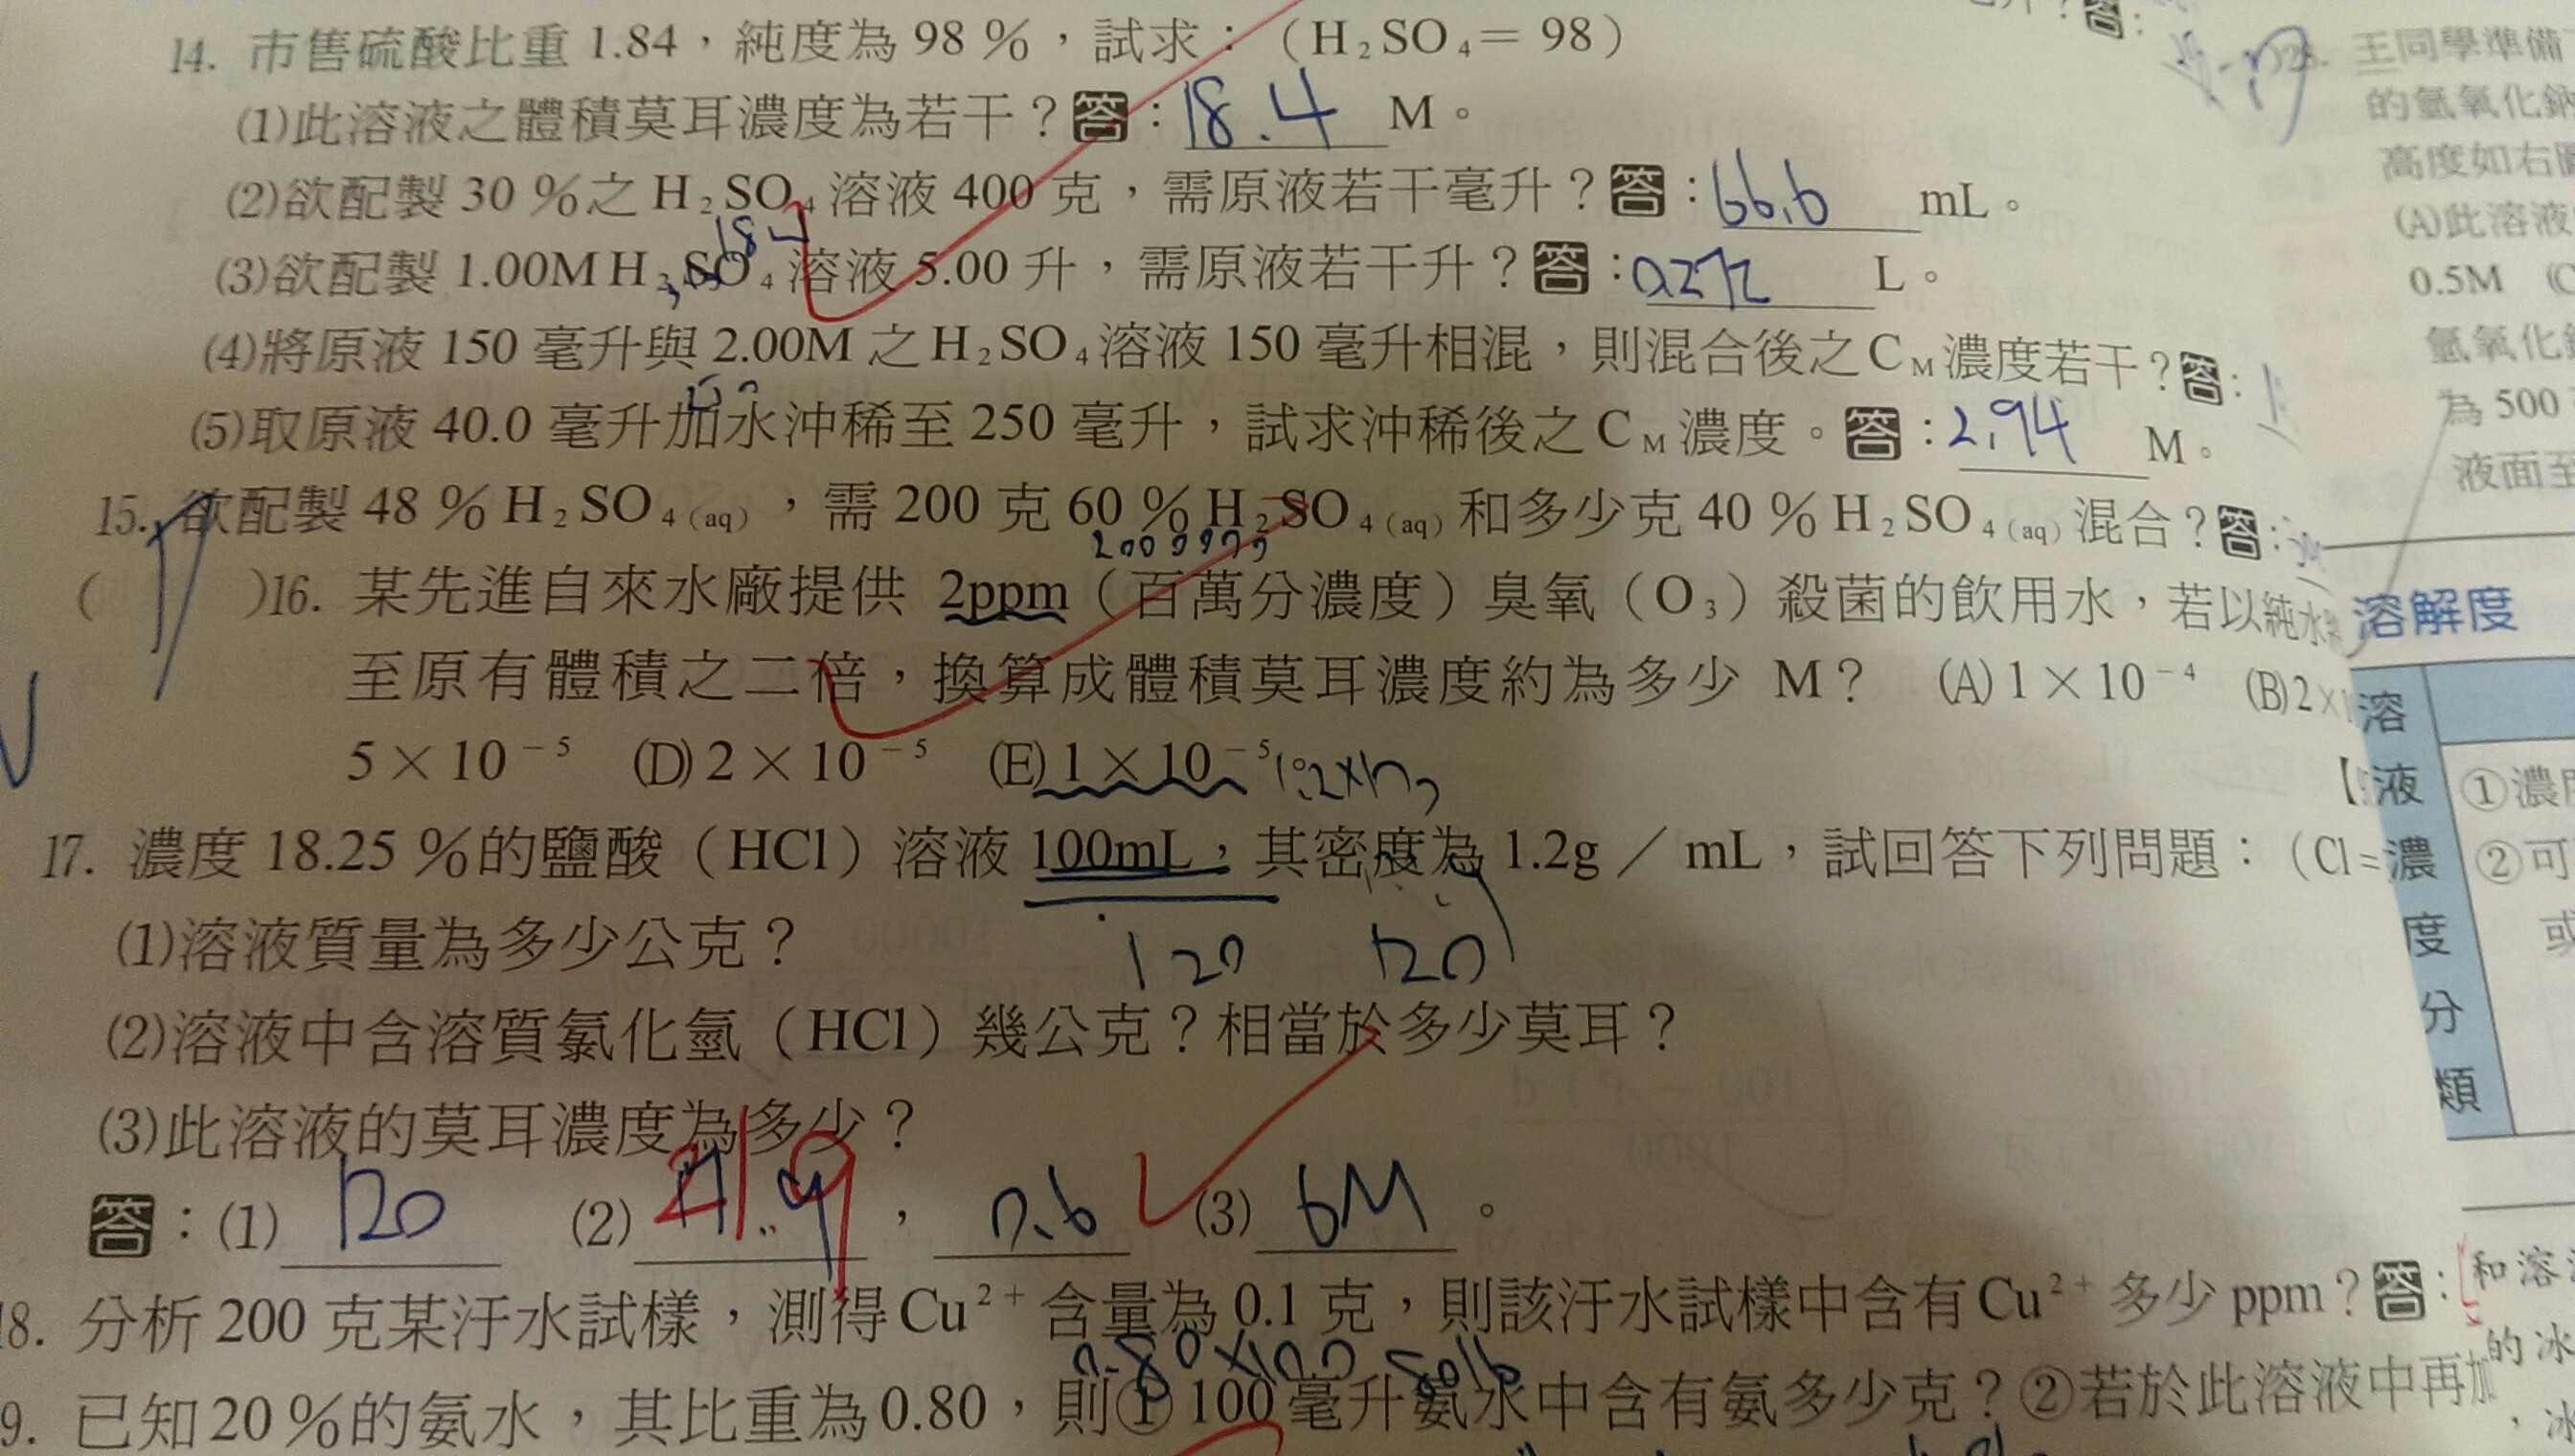 14. 市售硫酸比重 1.84，純度為 98 %，試求：（H₂SO₄＝98）
(1)此溶液之體積莫耳濃度為若干？答：18.4 M。
(2)欲配製 30 %之 H₂SO₄溶液 400 克，需原液若干毫升？答：66.6 mL。
(3)欲配製 1.00M H₂SO₄溶液 5.00 升，需原液若干升？答：0.272 L。
(4)將原液 150 毫升與 2.00M 之 H₂SO₄溶液 150 毫升相混，則混合後之 C_M 濃度若干？答：
(5)取原液 40.0 毫升加水沖稀至 250 毫升，試求沖稀後之 C_M 濃度。答：2.94 M。
15. 欲配製 48 % H₂SO₄(aq)，需 200 克 60 % H₂SO₄(aq)和多少克 40 % H₂SO₄(aq)混合？答：
( )16. 某先進自來水廠提供 2ppm（百萬分濃度）臭氧（O₃）殺菌的飲用水，若以純水
至原有體積之二倍，換算成體積莫耳濃度約為多少 M？ (A) 1×10⁻⁴ (B) 2×
5×10⁻⁵ (D) 2×10⁻⁵ (E) 1×10⁻⁵
17. 濃度 18.25 %的鹽酸（HCl）溶液 100mL，其密度為 1.2g／mL，試回答下列問題：（Cl＝
(1)溶液質量為多少公克？
120 120
(2)溶液中含溶質氯化氫（HCl）幾公克？相當於多少莫耳？
(3)此溶液的莫耳濃度為多少？
答：(1) 120 (2) 21.9，0.6 (3) 6M。
18. 分析 200 克某汙水試樣，測得 Cu²⁺含量為 0.1 克，則該汙水試樣中含有 Cu²⁺多少 ppm？答：
9. 已知 20 %的氨水，其比重為 0.80，則① 100 毫升氨水中含有氨多少克？②若於此溶液中再加
王同學準備
的氫氧化鈉
高度如右圖
(A)此溶液
0.5M
氫氧化
為 500
液面至
溶解度
溶液濃度分類
①濃度
②可
或
和溶
的冰
，冰